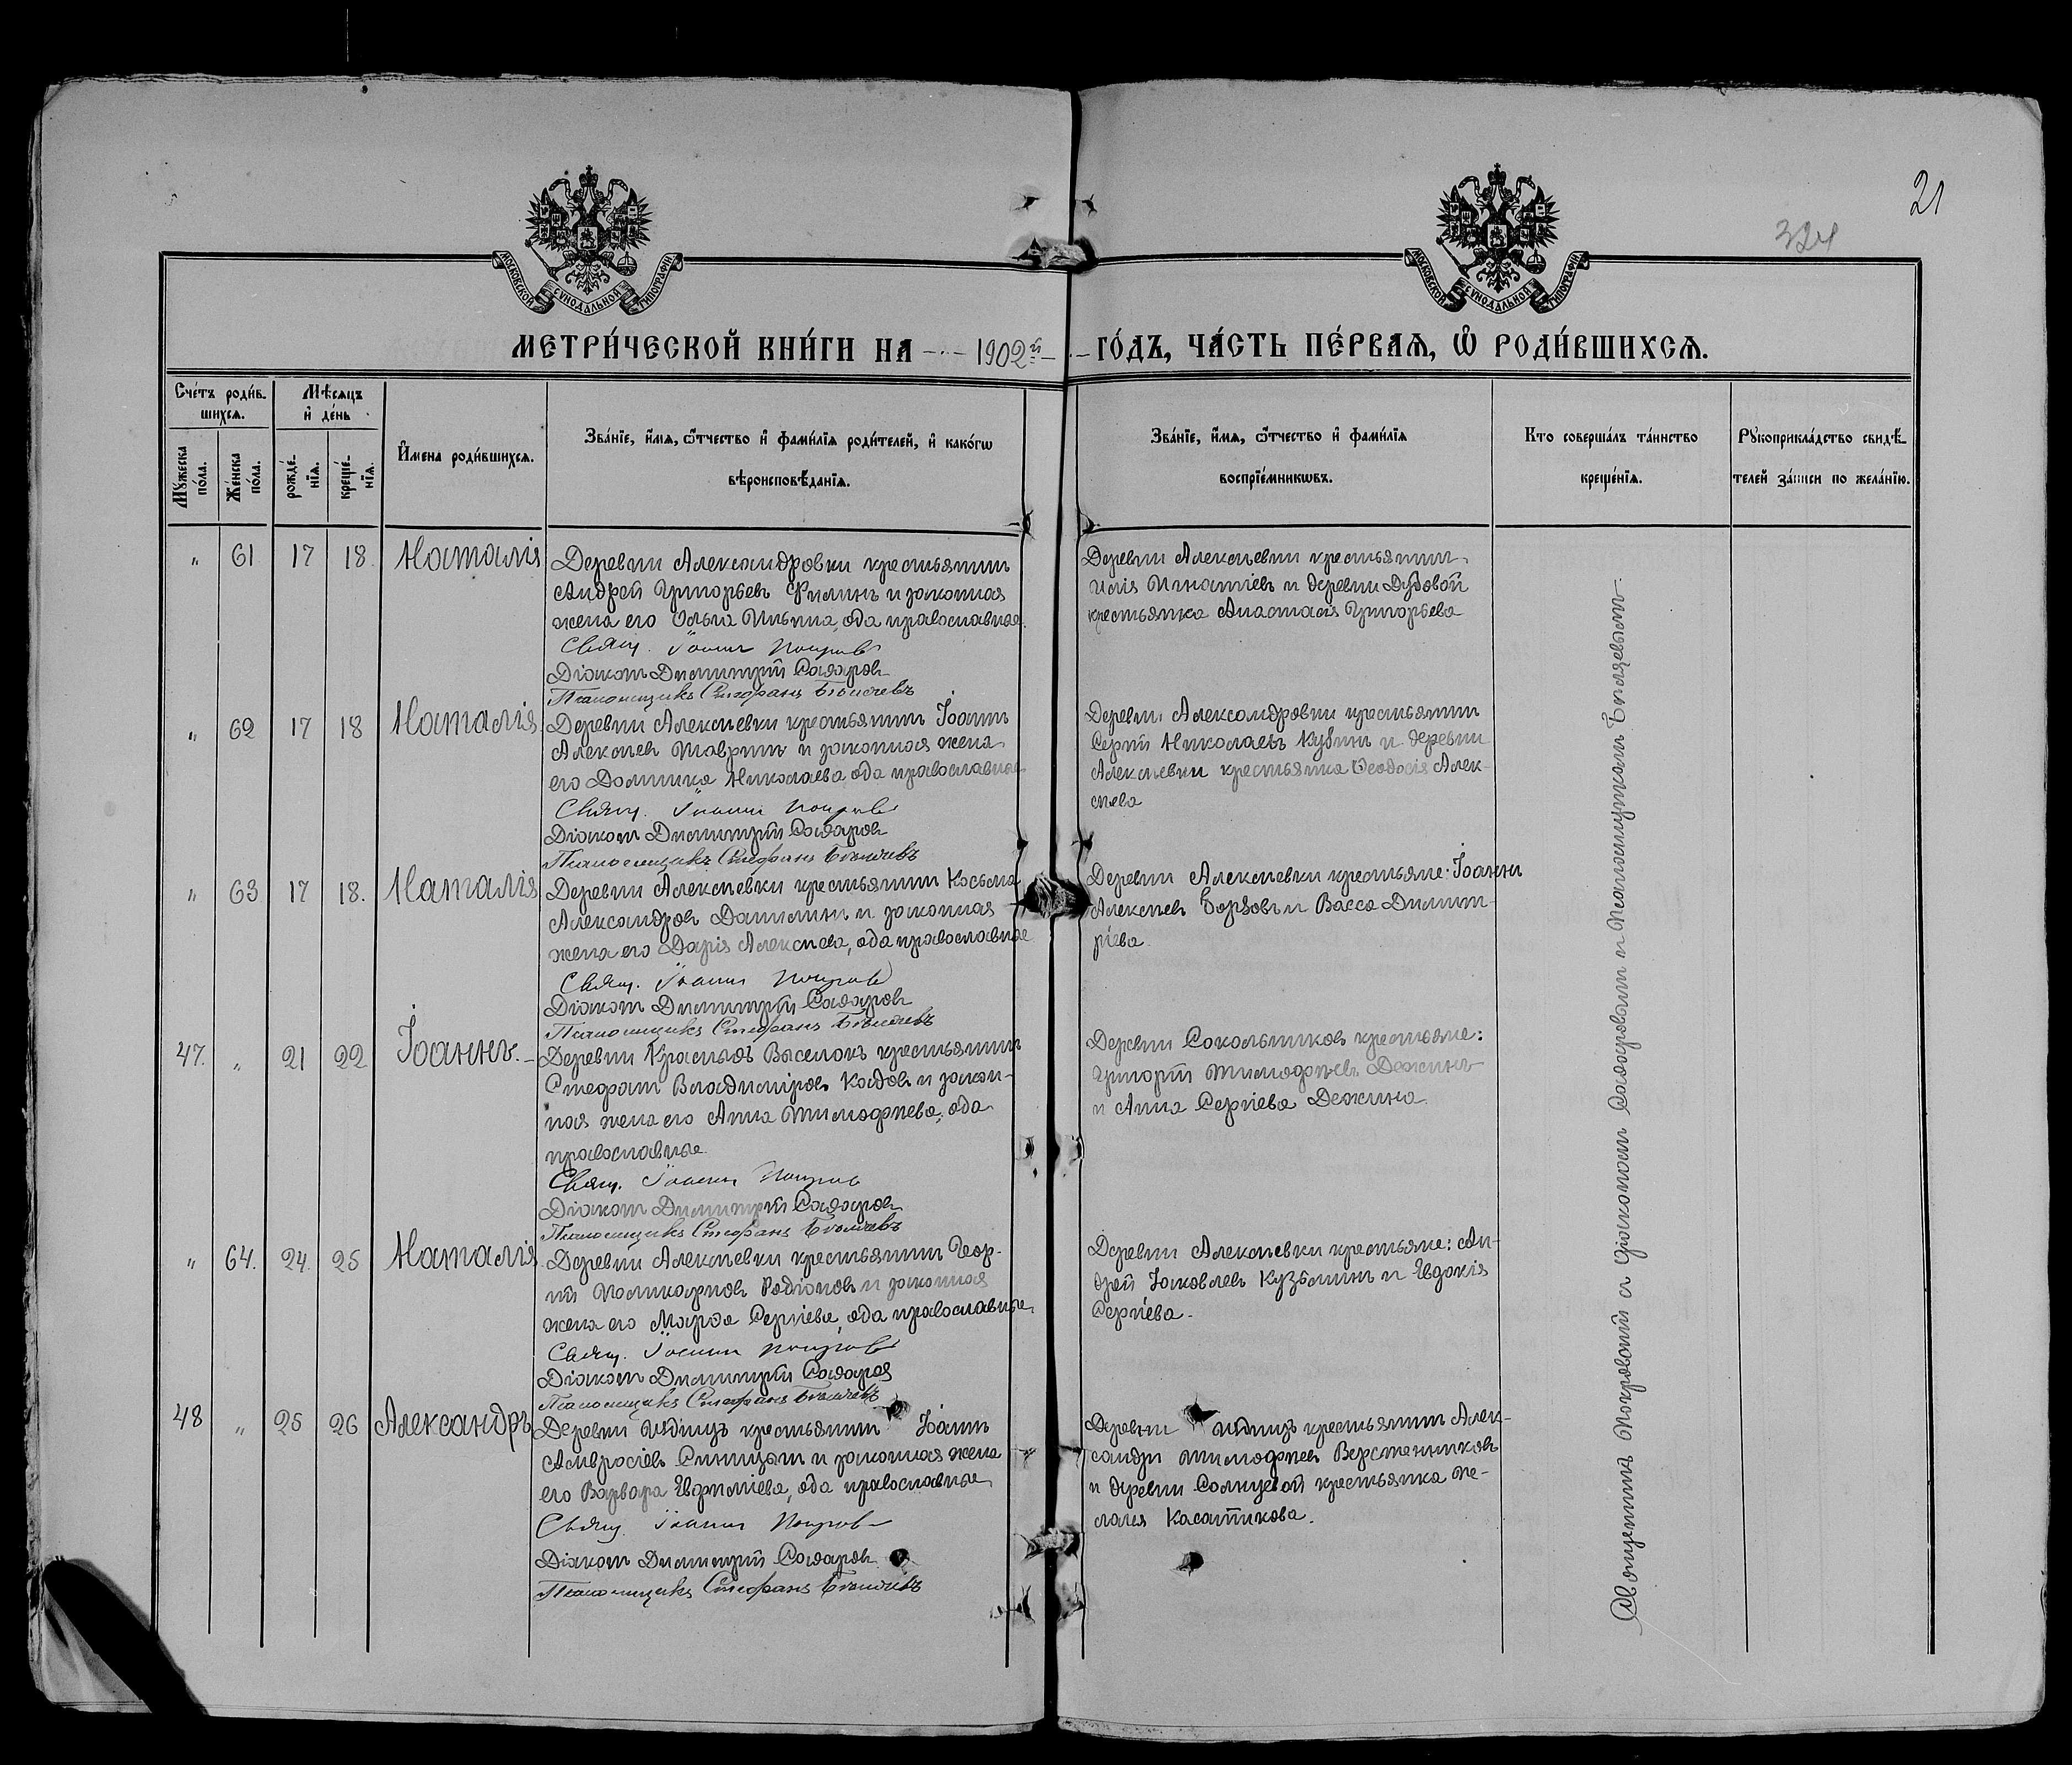 21
324
МОСКОВСКОЙ СѴНОДАЛЬНОЙ ТИПОГРАФІИ
МОСКОВСКОЙ СѴНОДАЛЬНОЙ ТИПОГРАФІИ
МЕТРИ́ЧЕСКОЙ КНИ́ГИ НА 1902й ГО́ДЪ, ЧА́СТЬ ПЕ́РВАЯ, Ѡ РОДИ́ВШИХСЯ.
Сче́тъ роди́в-
шихся.
Мѣ́сяцъ
и де́нь
Му́жеска
по́ла.
Же́нска
по́ла.
рожде́-
нїя.
креще́-
нїя.
И҆мена роди́вшихся.
Зва́нїе, и҆́мя, ѻ҆́тчество и҆ фами́лїя роди́телей, и҆ како́гѡ
вѣроисповѣ́данїя.
Зва́нїе, и҆́мя, ѻ҆́тчество и҆ фами́лїя
воспрїе́мникѡвъ.
Кто соверша́лъ та́инство
креще́нїя.
Рꙋкоприкла́дство свидѣ́-
телей за́писи по жела́нїю.
" 61 17 18. Наталія
Деревни Александровки крестьянинъ
Андрей Григорьевъ Филинъ и законная
жена его Ольга Ильина, оба православные.
Свящ. Іоаннъ Покров
Діаконъ Димитрій
Псаломщикъ Стефанъ Бѣляевъ
Деревни Алексѣевки крестьянинъ
Илія Игнатіевъ и деревни Дубовой
крестьянка Анастасія Григорьева
" 62 17 18 Наталія
Деревни Алексѣевки крестьянинъ Іоаннъ
Алексѣевъ Тавринъ и законная жена
его Домника Николаева оба православные
Свящ. Іоаннъ Покров
Діаконъ Димитрій
Псаломщикъ Стефанъ Бѣляевъ
Деревни Александровки крестьянинъ
Сергій Николаевъ Кубинъ и деревни
Алексѣевки крестьянка Ѳеодосія Алек-
сѣева
" 63 17 18. Наталія
Деревни Алексѣевки крестьянинъ Косьма
Александровъ Данилинъ и законная
жена его Дарія Алексѣева, оба православные
Свящ. Іоаннъ Покров
Діаконъ Димитрій
Псаломщикъ Стефанъ Бѣляевъ
Деревни Алексѣевки крестьяне: Іоаннъ
Алексѣевъ Борзовъ и Васса Димит-
ріева
47. " 21 22 Іоаннъ.
Деревни Красный Выселокъ крестьянинъ
Стефанъ Владиміровъ Кадовъ и закон-
ная жена его Анна Тимофѣева, оба
православные.
Свящ. Іоаннъ Покров
Діаконъ Димитрій
Псаломщикъ Стефанъ Бѣляевъ
Деревни Сокольниковъ крестьяне:
Григорій Тимофѣевъ Дежинъ
и Анна Сергіева Дежина.
" 64. 24. 25 Наталія.
Деревни Алексѣевки крестьянинъ Геор-
гій Поликарповъ Родіоновъ и законная
жена его Марѳа Сергіева, оба православные.
Свящ. Іоаннъ Покров
Діаконъ Димитрій
Псаломщикъ Стефанъ Бѣляевъ
Деревни Алексѣевки крестьяне: Ан-
дрей Іаковлевъ Кузьминъ и Евдокія
Сергіева.
48 " 25 26 Александръ
Деревни крестьянинъ Іоаннъ
Амвросіевъ Синицынъ и законная жена
его Варвара Евфиміева, оба православные
Свящ. Іоаннъ Покров
Діаконъ Димитрій
Псаломщикъ Стефанъ Бѣляевъ
Деревни крестьянинъ Алек-
сандръ Тимофѣевъ Верстенниковъ
и деревни Солнцевой крестьянка Пе-
лагія Касаткина.
Священникъ Покровскій съ діакономъ и псаломщикомъ Бѣляевымъ